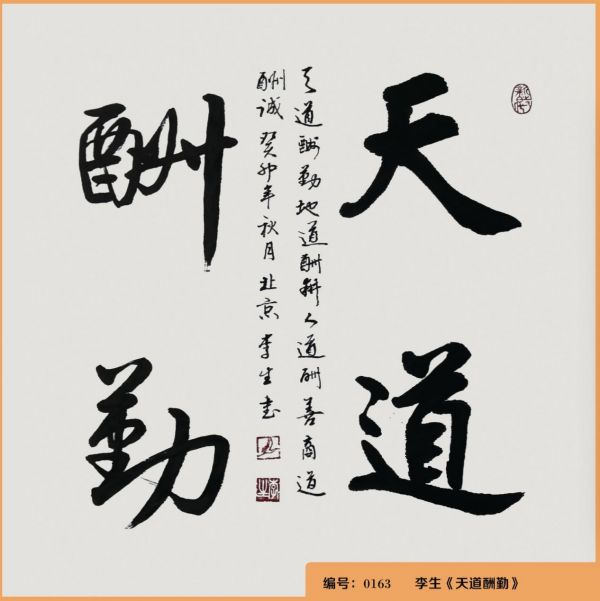 天道
酬勤
天道酬勤地道酬耕人道酬善商道
酬诚 癸卯年秋月北京李生书
李生
编号：0163 李生《天道酬勤》